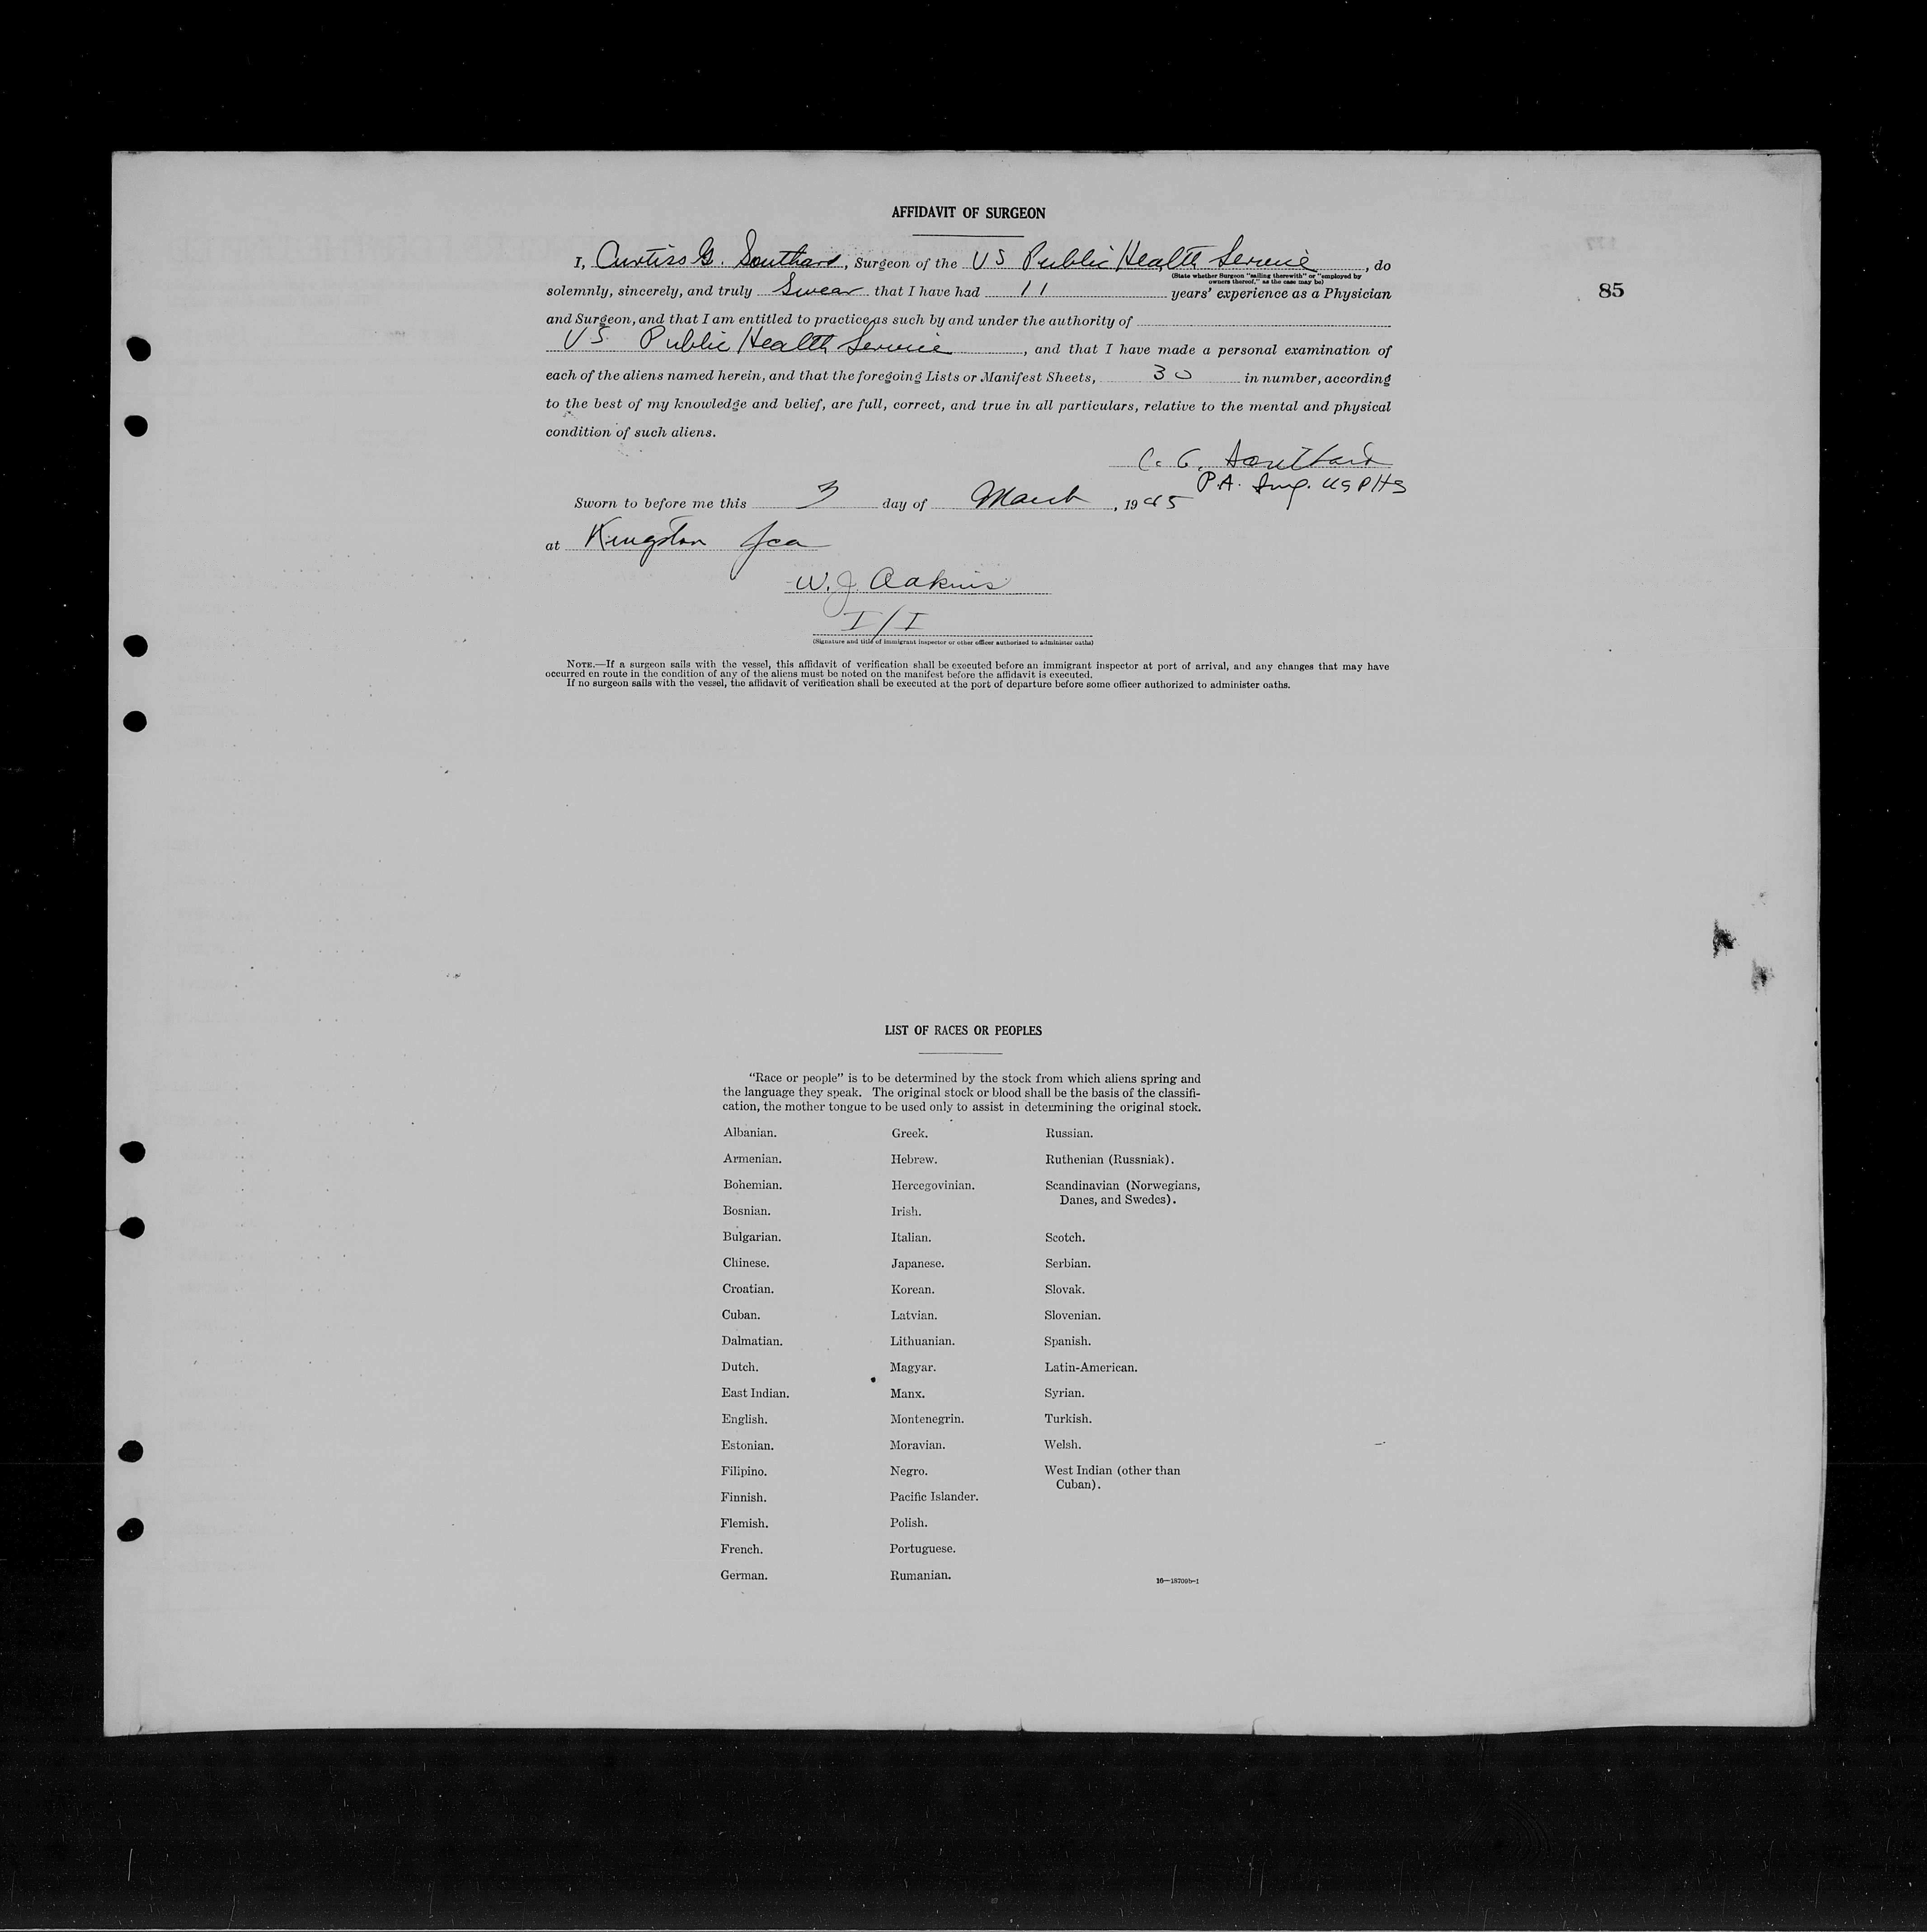 AFFIDAVIT OF SURGEON
I, Curtiss G. Southard, Surgeon of the US Public Health Service, do
(State whether Surgeon "sailing therewith" or "employed by
owners thereof," as the case may be)
solemnly, sincerely, and truly Swear that I have had 11 years' experience as a Physician
85
and Surgeon, and that I am entitled to practice as such by and under the authority of
US Public Health Service, and that I have made a personal examination of
each of the aliens named herein, and that the foregoing Lists or Manifest Sheets, 30 in number, according
to the best of my knowledge and belief, are full, correct, and true in all particulars, relative to the mental and physical
condition of such aliens.
C. G. Southard
P.A. Surg. USPHS
Sworn to before me this 3 day of March, 1945
at Kingston Jca
W. J. Aakins
I/I
(Signature and title of immigrant inspector or other officer authorized to administer oaths)
NOTE.—If a surgeon sails with the vessel, this affidavit of verification shall be executed before an immigrant inspector at port of arrival, and any changes that may have
occurred en route in the condition of any of the aliens must be noted on the manifest before the affidavit is executed.
If no surgeon sails with the vessel, the affidavit of verification shall be executed at the port of departure before some officer authorized to administer oaths.
LIST OF RACES OR PEOPLES
"Race or people" is to be determined by the stock from which aliens spring and
the language they speak. The original stock or blood shall be the basis of the classifi-
cation, the mother tongue to be used only to assist in determining the original stock.
Albanian.
Armenian.
Bohemian.
Bosnian.
Bulgarian.
Chinese.
Croatian.
Cuban.
Dalmatian.
Dutch.
East Indian.
English.
Estonian.
Filipino.
Finnish.
Flemish.
French.
German.
Greek.
Hebrew.
Hercegovinian.
Irish.
Italian.
Japanese.
Korean.
Latvian.
Lithuanian.
Magyar.
Manx.
Montenegrin.
Moravian.
Negro.
Pacific Islander.
Polish.
Portuguese.
Rumanian.
Russian.
Ruthenian (Russniak).
Scandinavian (Norwegians,
Danes, and Swedes).
Scotch.
Serbian.
Slovak.
Slovenian.
Spanish.
Latin-American.
Syrian.
Turkish.
Welsh.
West Indian (other than
Cuban).
16—18709b-1